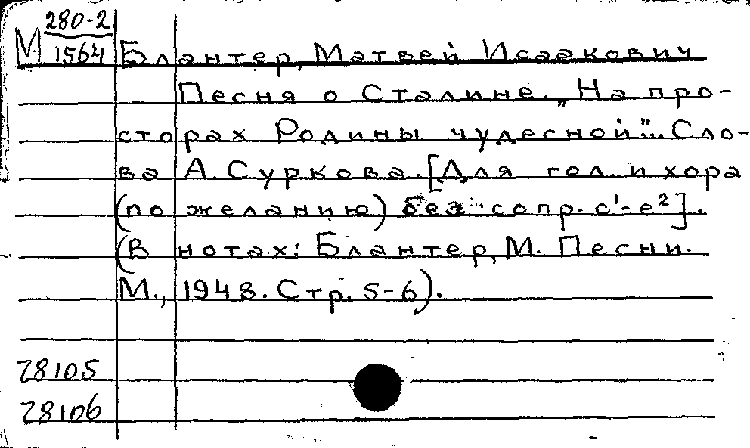 280-2
М 1564 Блантер, Матвей Исаакович
Песня о Сталине. "На про-
сторах Родины чудесной"... Сло-
ва А. Суркова. [Для гол. и хора
(по желанию) без сопр. c¹-e²].
(В нотах: Блантер, М. Песни.
М., 1948. Стр. 5-6).
28105
28106